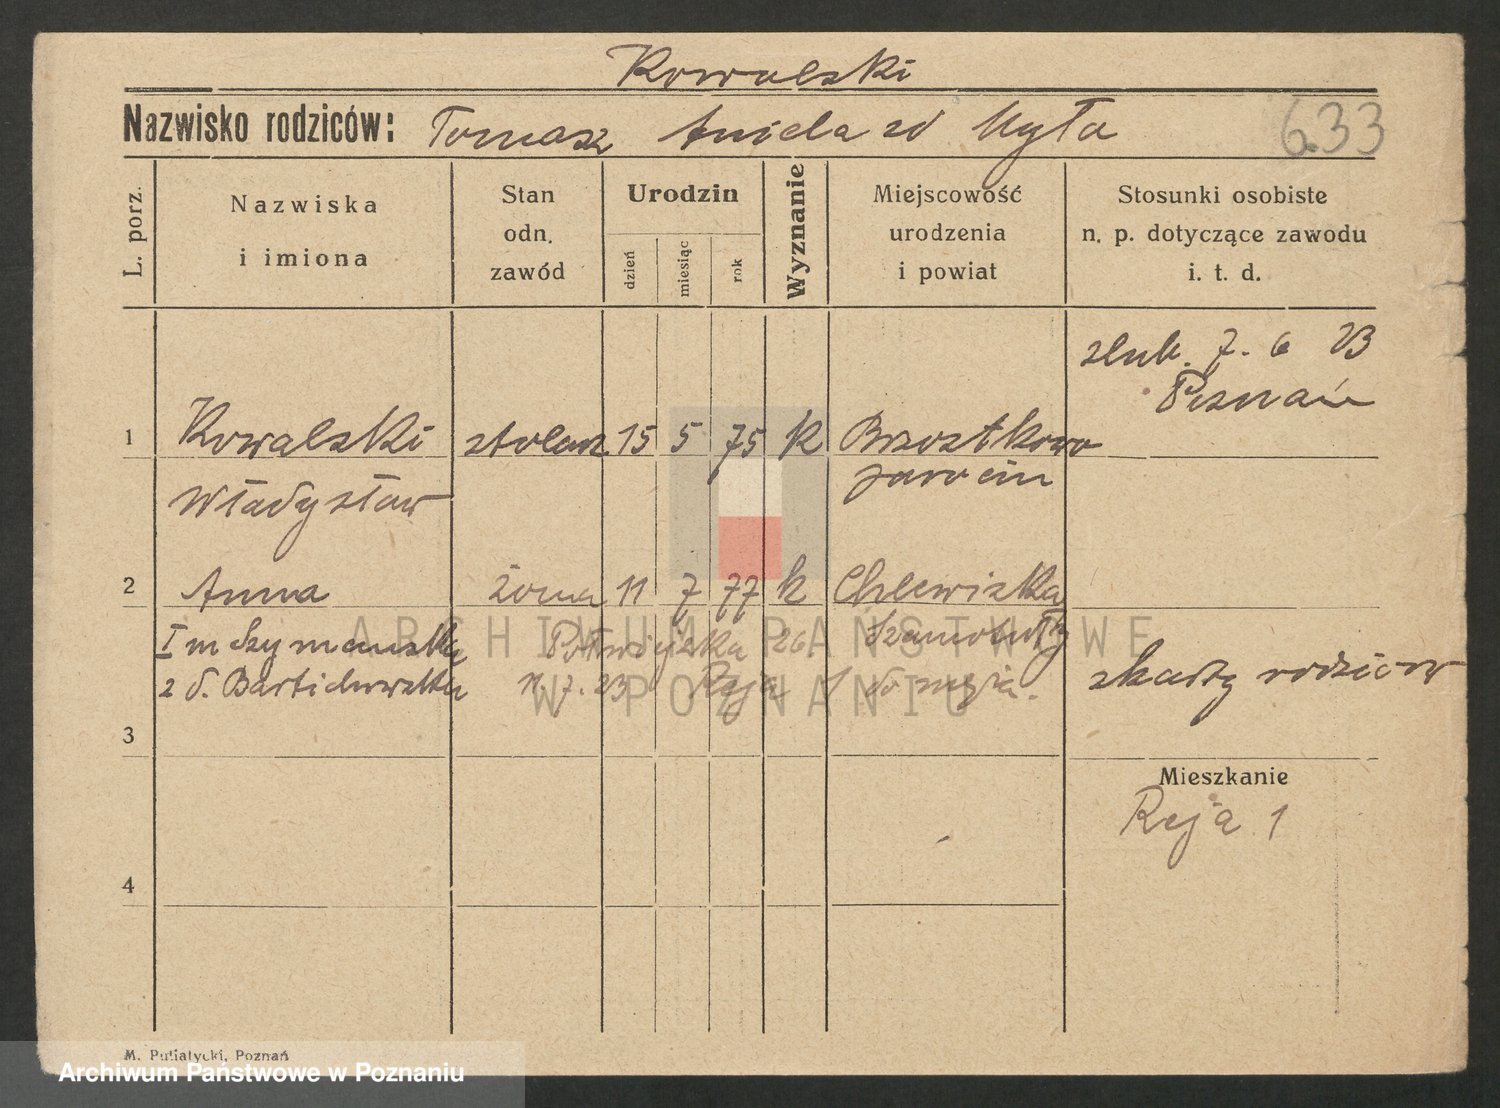 Kowalski
Nazwisko rodziców: Tomasz Aniela zd Myła
633
L. porz.
Nazwiska
i imiona
Stan
odn.
zawód
Urodzin
dzień
miesiąc
rok
Wyznanie
Miejscowość
urodzenia
i powiat
Stosunki osobiste
n. p. dotyczące zawodu
i. t. d.
ślub. 7. 6 23
Poznań
1 Kowalski stolarz 15 5 75 k Brzostkowo
Jarocin
Władysław
2 Anna żona 11 7 77 k Chlewiska
I m Szymańska 26. Szamotuły
2 d. Bartichowska 11.7.23 Reja 1 do męża.
z karty rodziców
3
Mieszkanie
Reja 1
4
ARCHIWUM PAŃSTWOWE
W POZNANIU
M. Putiatycki, Poznań
Archiwum Państwowe w Poznaniu